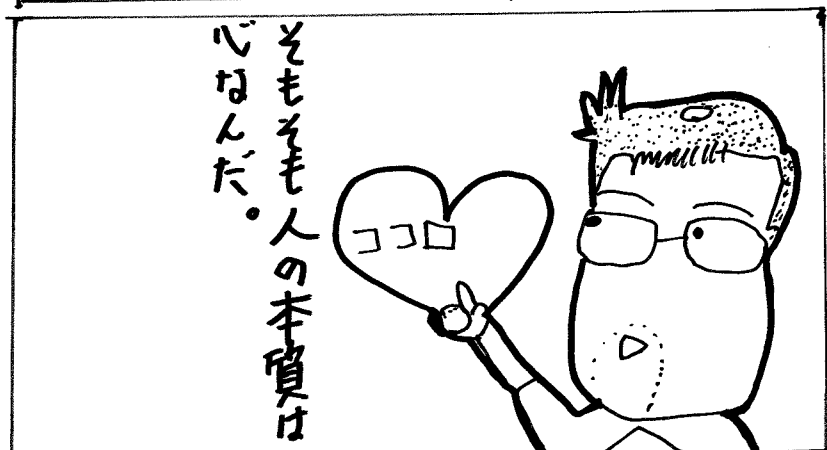 そもそも人の本質は
心なんだ。
ココロ